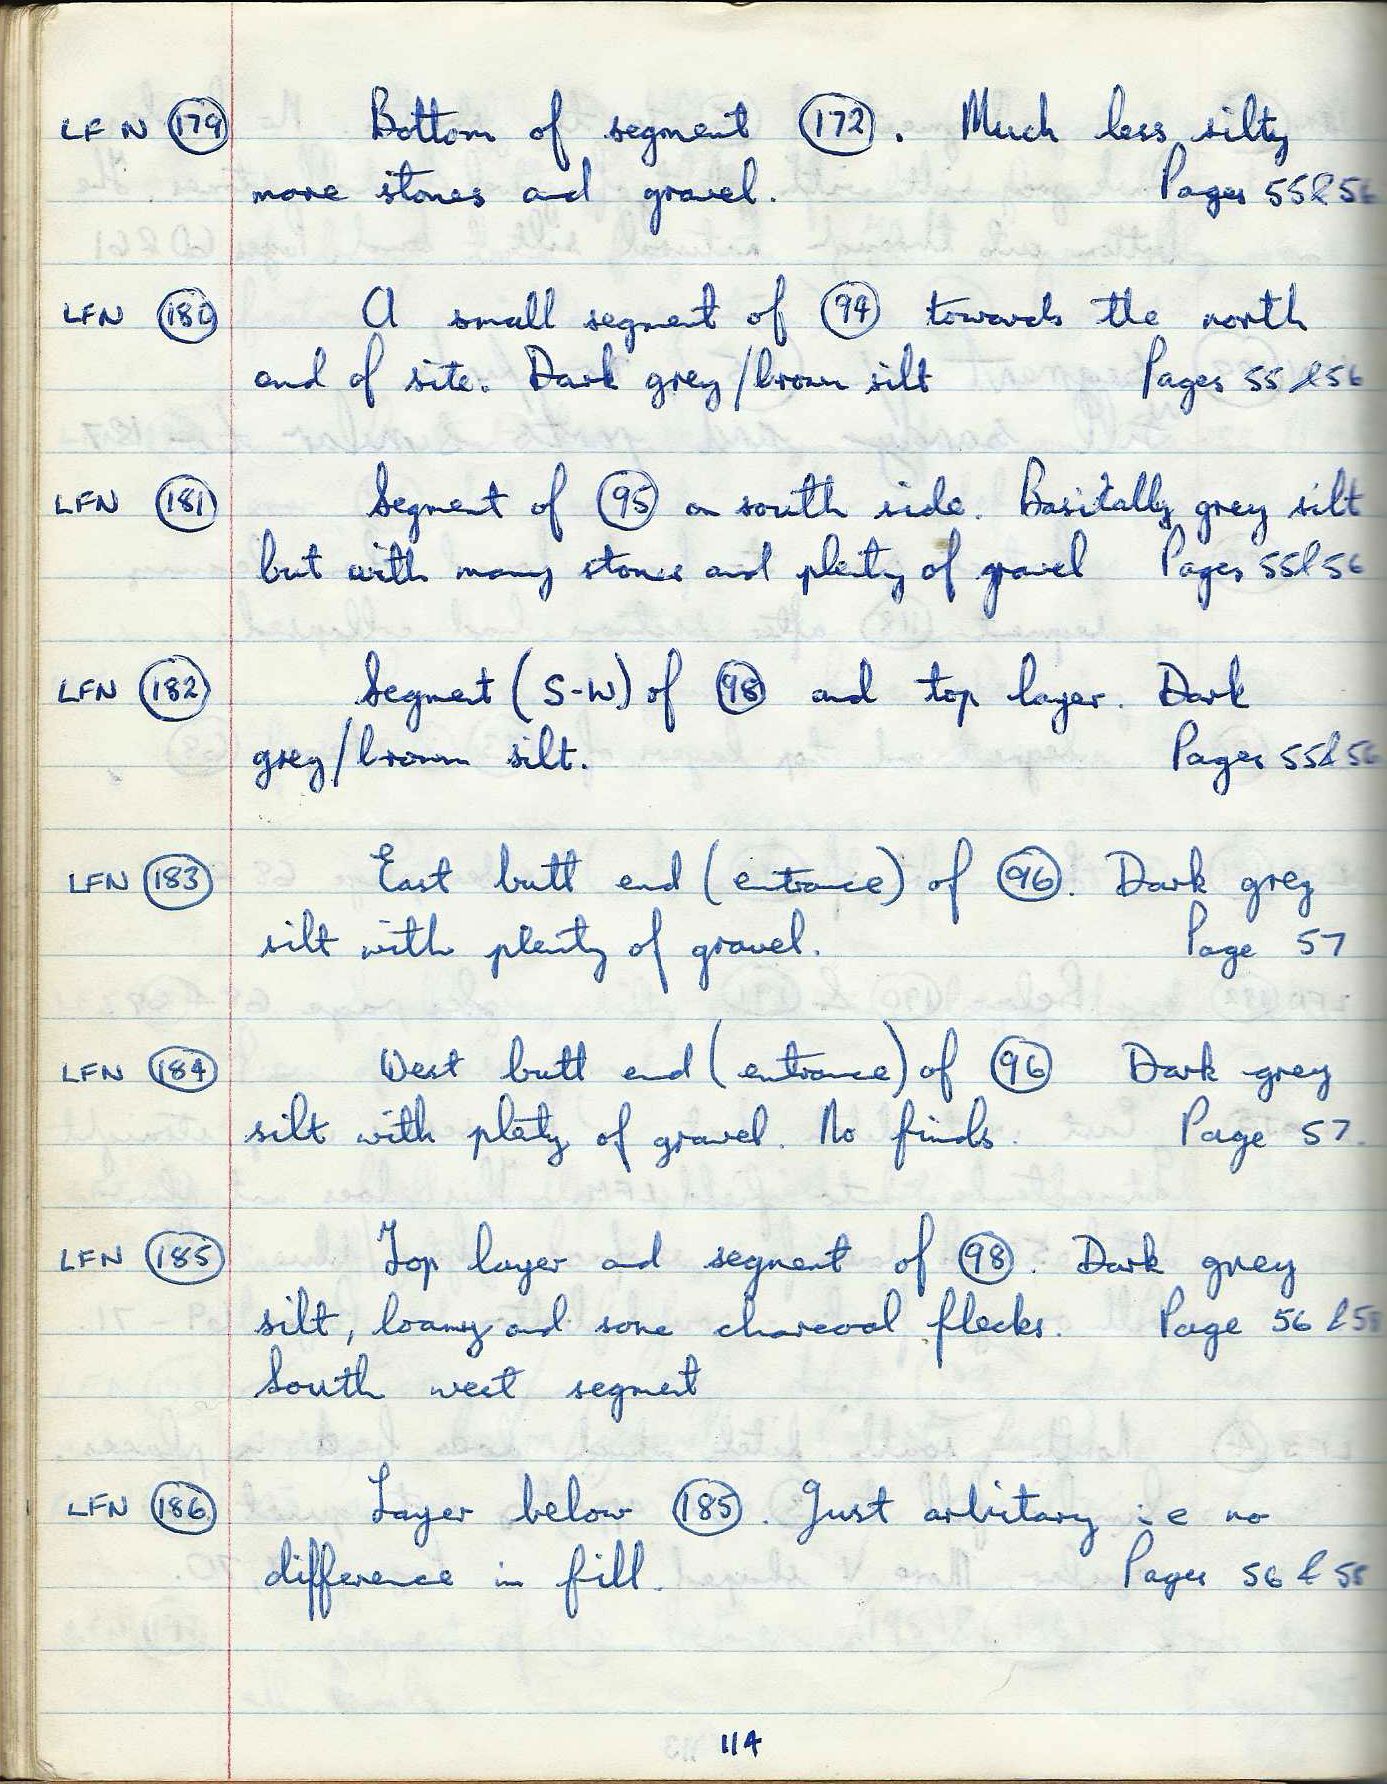 LFN 179 Bottom of segment 172. Much less silty
more stones and gravel. Pages 55 & 56
LFN 180 A small segment of 94 towards the north
end of site. Dark grey/brown silt Pages 55 & 56
LFN 181 Segment of 95 on south side. Basitally grey silt
but with many stones and plenty of gravel Pages 55 & 56
LFN 182 Segment (S-W) of 98 and top layer. Dark
grey/brown silt. Pages 55 & 56
LFN 183 East butt end (entrance) of 96. Dark grey
silt with plenty of gravel. Page 57
LFN 184 West butt end (entrance) of 96 Dark grey
silt with plety of gravel. No finds. Page 57.
LFN 185 Top layer and segment of 98. Dark grey
silt, loamy and some charcoal flecks. Page 56 &
South west segment
LFN 186 Layer below 185. Just arbitary i e no
difference in fill. Pages 56 &
114